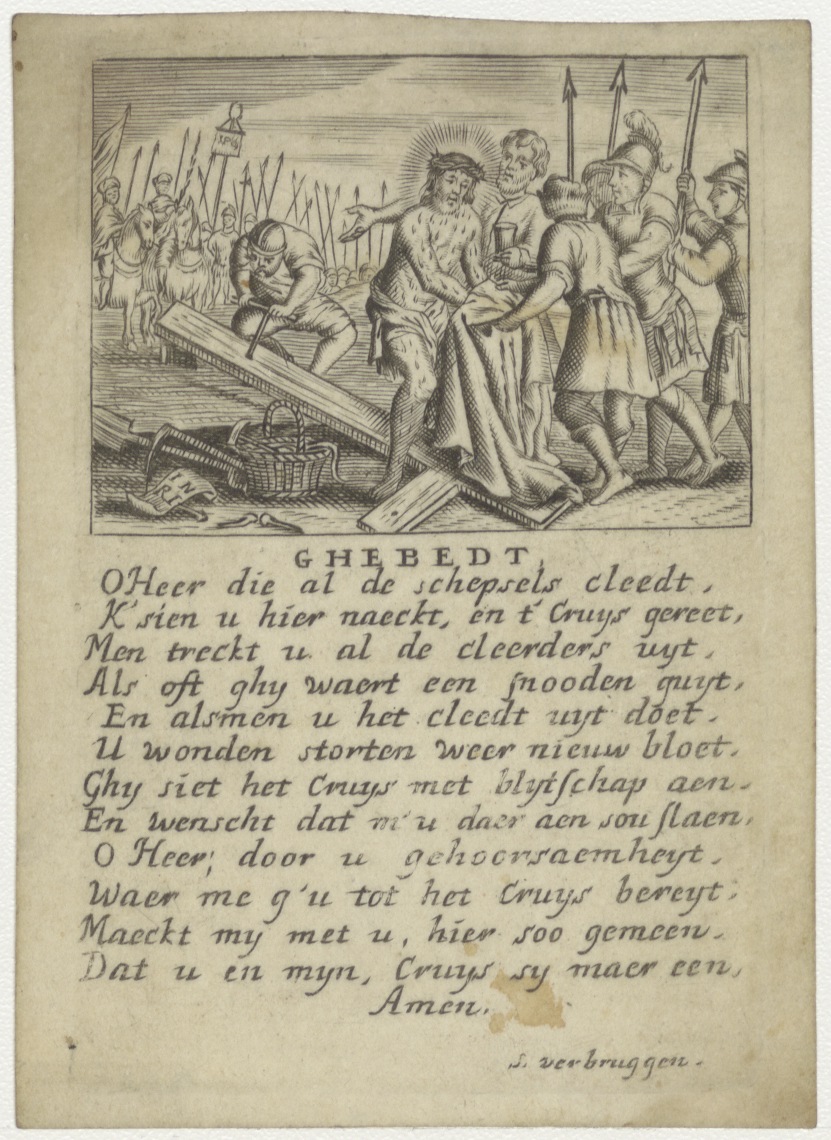 IN
RI
GHEBEDT,
O Heer die al de schepsels cleedt,
K'sien u hier naeckt, en t' Cruys gereet,
Men treckt u al de cleerders uyt,
Als oft ghy waert een snooden guyt,
En alsmen u het cleedt uyt doet.
U wonden storten weer nieuw bloet.
Ghy siet het Cruys met blytschap aen.
En wenscht dat m'u daer aen sou slaen,
O Heer, door u gehoorsaemheyt,
Waer me g'u tot het Cruys bereyt,
Maeckt my met u, hier soo gemeen.
Dat u en myn, Cruys sy maer een,
Amen.
s. verbruggen.